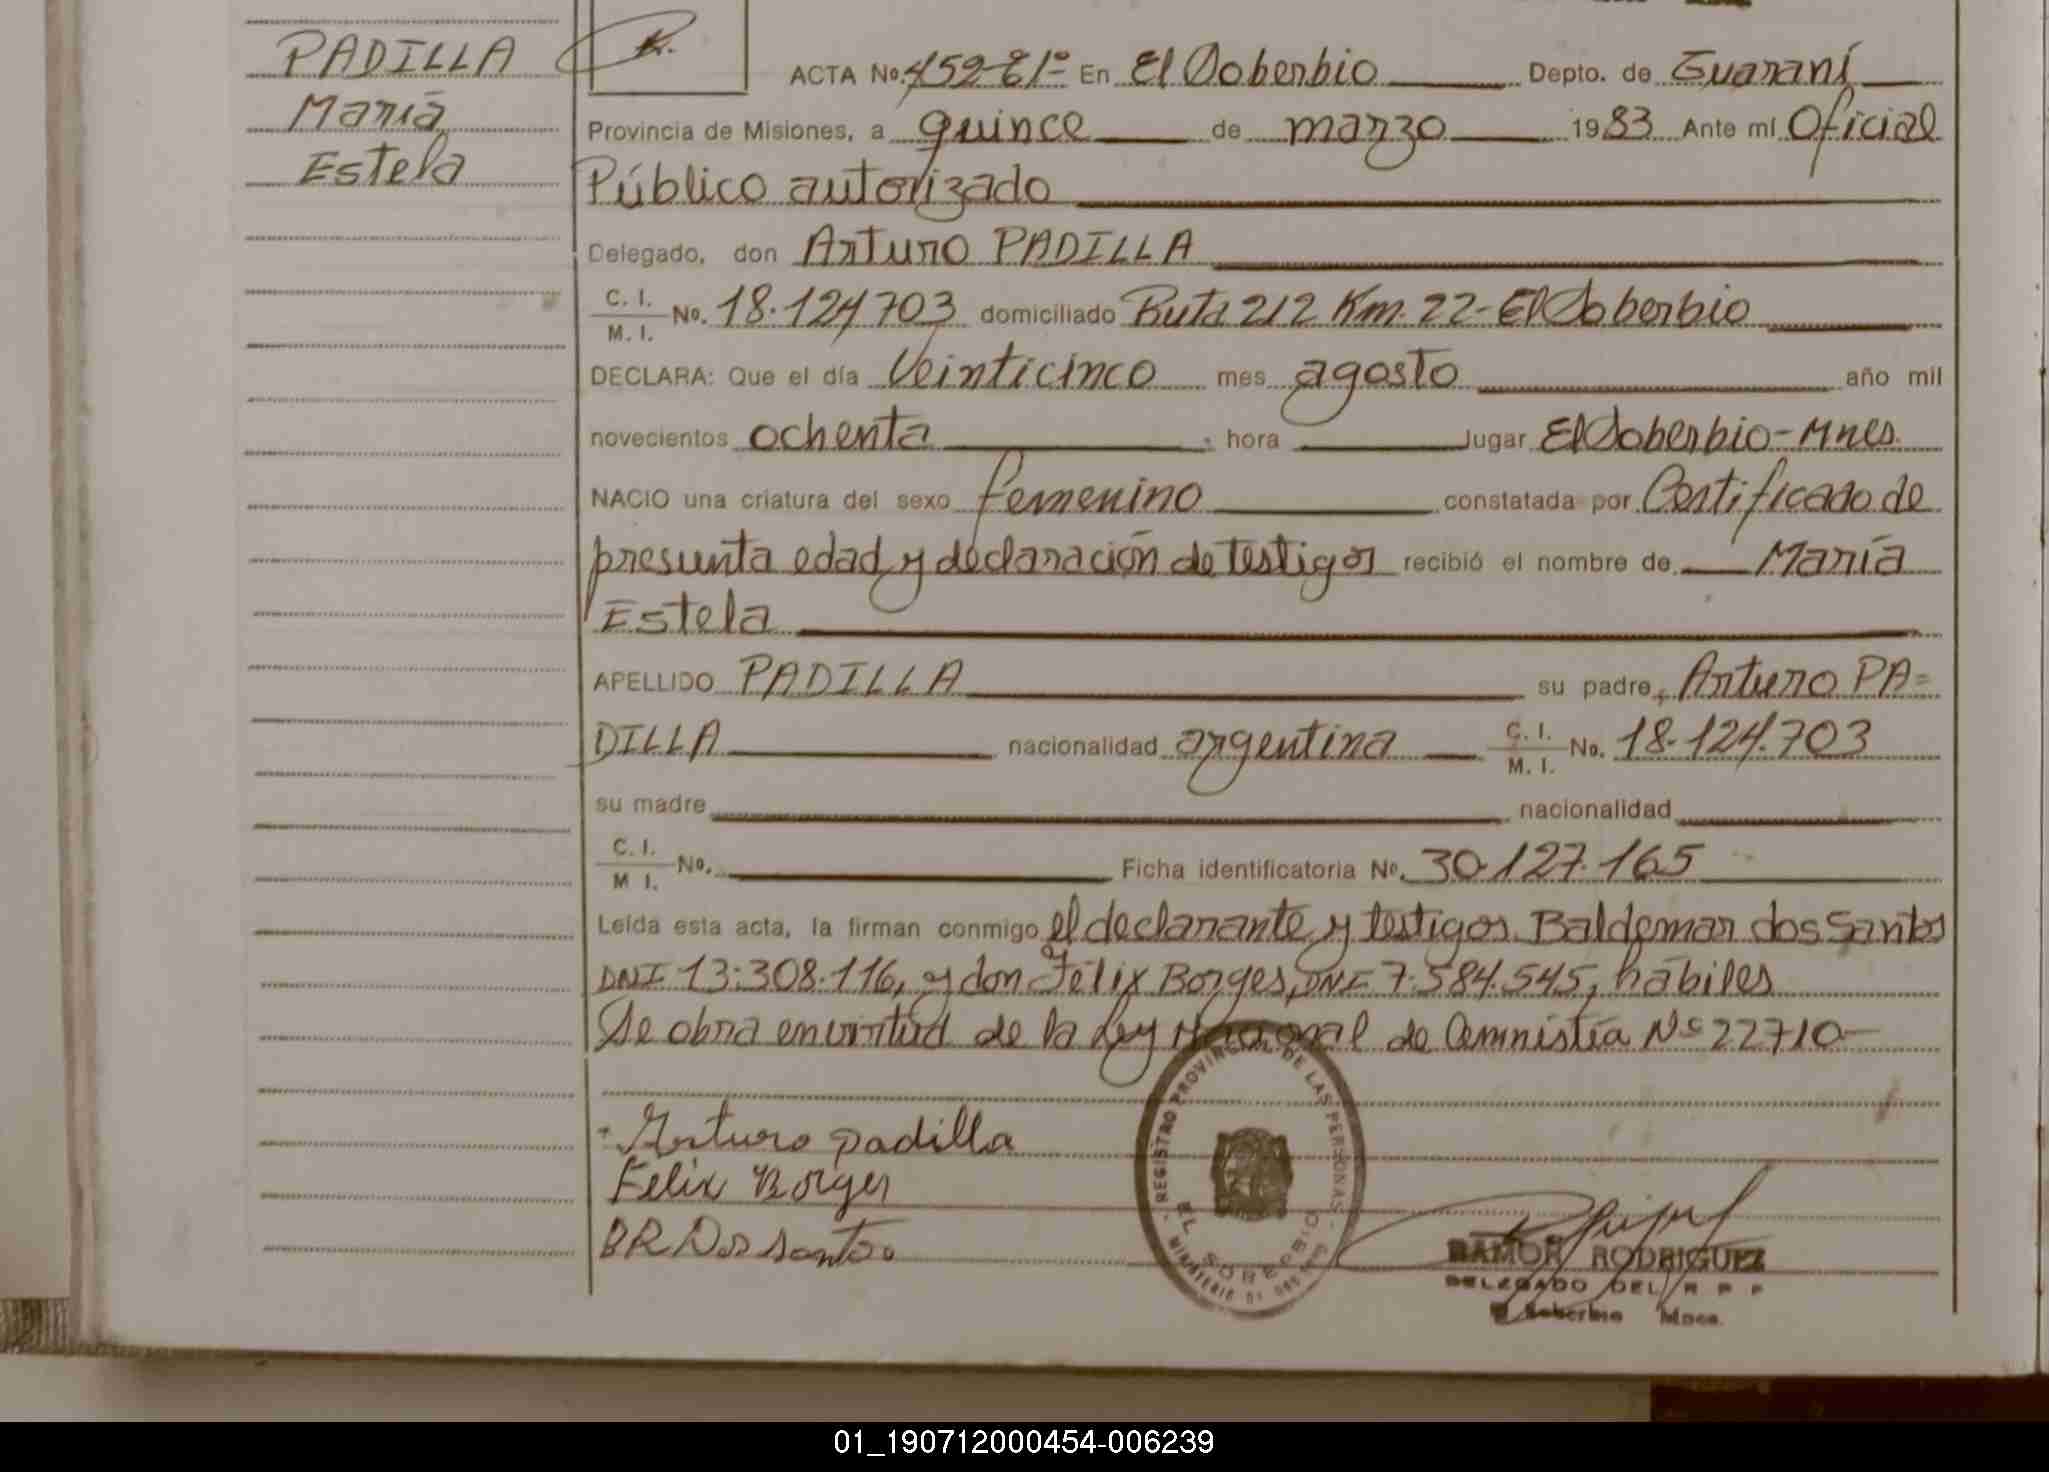 PADILLA
María
Estela
ACTA No. 459-E1º En El Soberbio Depto. de Guaraní
Provincia de Misiones, a quince de marzo 1983 Ante mí Oficial
Público autorizado
Delegado, don Arturo PADILLA
C. I. / M. I. No. 18.124.703 domiciliado Ruta 212 Km. 22-El Soberbio
DECLARA: Que el día Veinticinco mes agosto año mil
novecientos ochenta, hora lugar El Soberbio-Mnes.
NACIO una criatura del sexo femenino constatada por Certificado de
presunta edad y declaración de testigos recibió el nombre de María
Estela
APELLIDO PADILLA su padre, Arturo PA=
DILLA nacionalidad argentina C. I. / M. I. No. 18.124.703
su madre nacionalidad
C. I. / M I. No. Ficha identificatoria No. 30.127.165
Leída esta acta, la firman conmigo el declarante y testigos Baldemar dos Santos
DNI 13.308.116, y don Félix Borges, DNI 7.584.545, hábiles
Se obra en virtud de la Ley Nacional de Amnistía Nº 22710-
Arturo padilla
Felix Borges
BR Dos santos
REGISTRO PROVINCIAL DE LAS PERSONAS
EL SOBERBIO
RAMON RODRIGUEZ
DELEGADO DEL R P P
El Soberbio Mnes.
01_190712000454-006239